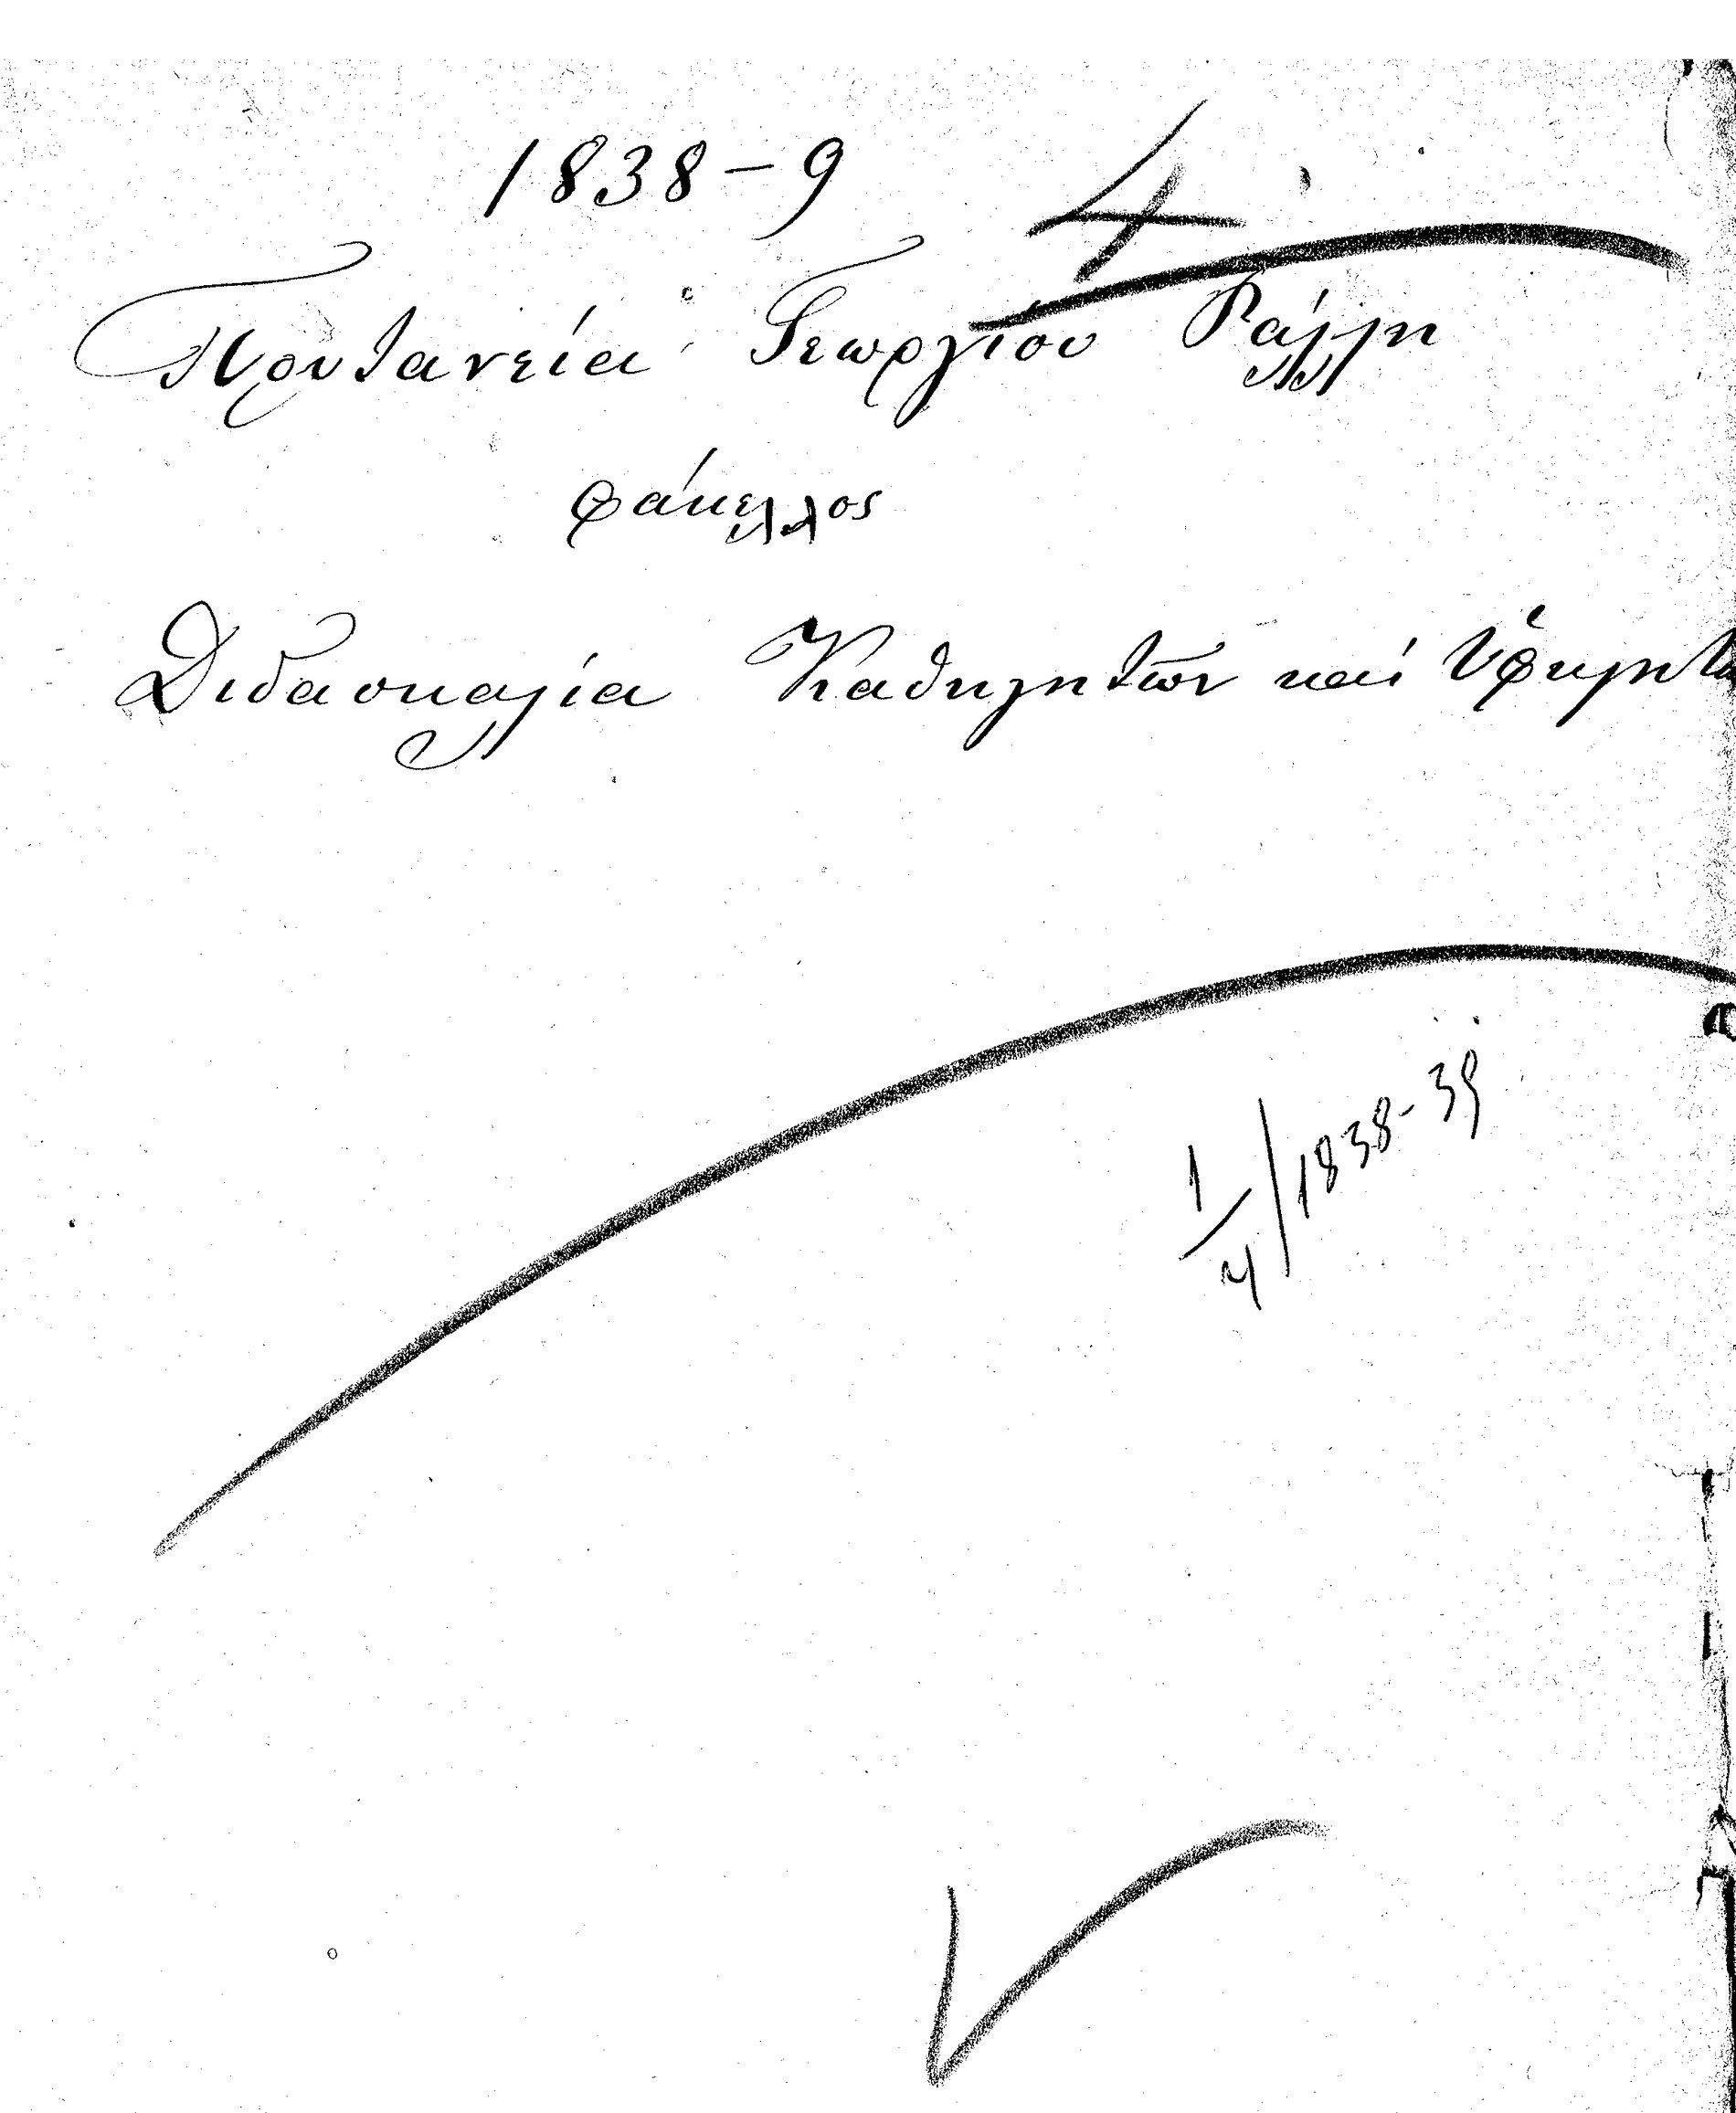 1838-9
4
Πρυτανεία Γεωργίου Ράλλη
φάκελλος
Διδασκαλία Καθηγητῶν καί Ὑφηγητῶ
1/4/1838-39